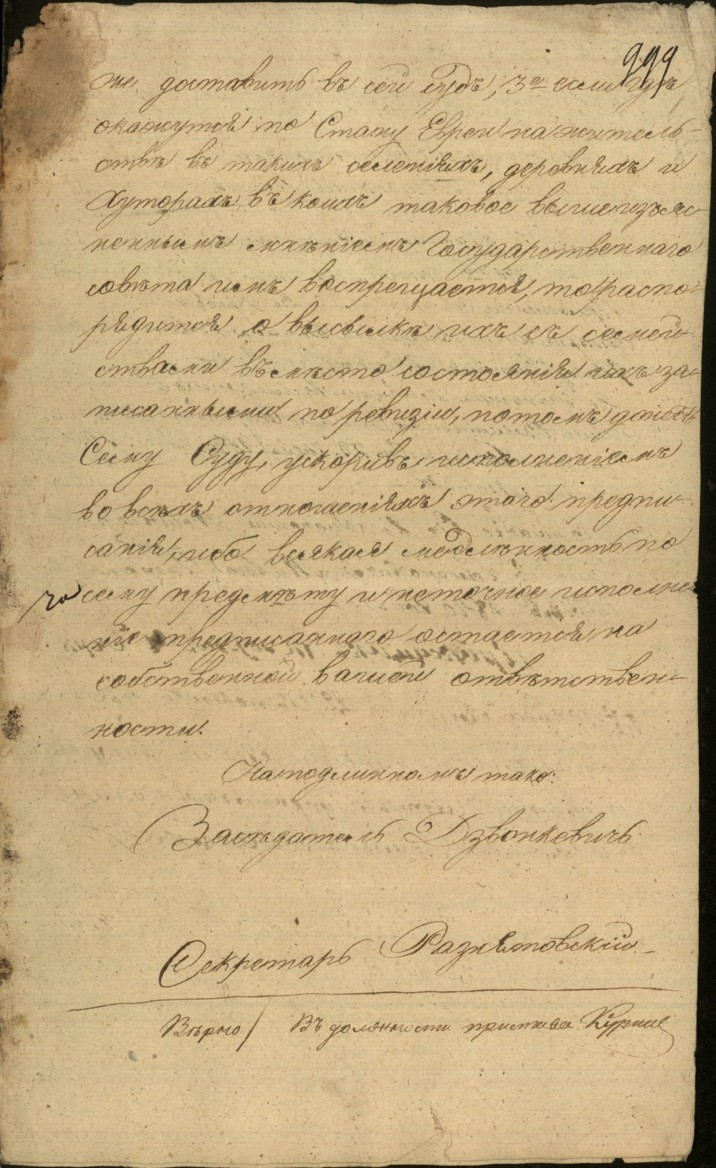 999
же доставить въ сей судъ, 3е если гдѣ
окажутся по Стану Евреи на житель-
ствѣ въ такихъ селеніяхъ, деревняхъ и
Хуторахъ въ коихъ таковое вышеизъяс-
неннымъ мнѣніемъ Государственнаго
совѣта имъ воспрещается, то распо-
рядится о высылкѣ ихъ съ семей-
ствами въ мѣсто состоянія ихъ за-
писанными по ревизіи, потомъ донесть
Сему Суду, ускоривъ исполненіемъ
во всѣхъ отношеніяхъ этого предпи-
санія, ибо всякая медлѣнность по
сему предмѣту и неточное исполне-
ніе предписаннаго остается на
собственной вашей отвѣтствен-
ности.
На подлинномъ тако:
Засѣдатель Дзвонковичъ
Секретарь
Вѣрно / Въ должности пристава